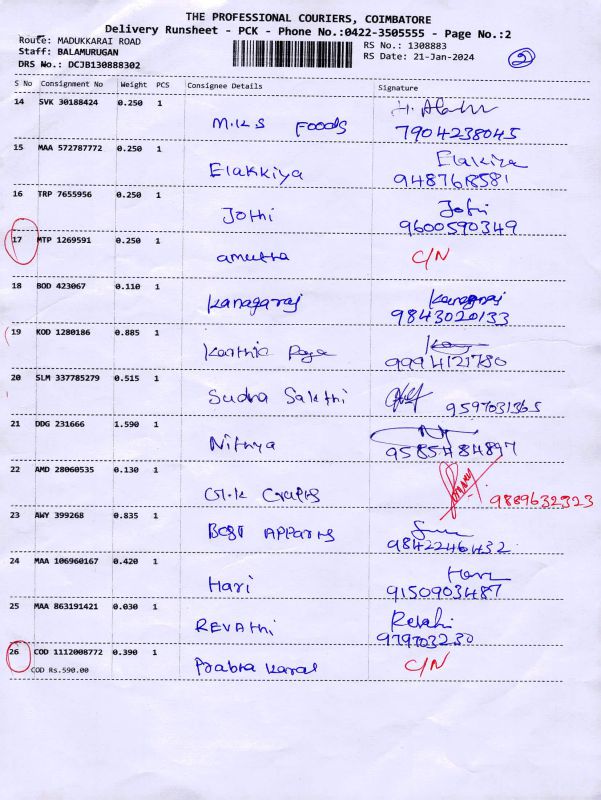 THE PROFESSIONAL COURIERS, COIMBATORE
Delivery Runsheet - PCK - Phone No.:0422-3505555 - Page No.:2
Route: MADUKKARAI ROAD RS No.: 1308883
Staff: BALAMURUGAN RS Date: 21-Jan-2024 2
DRS No.: DCJB130888302
S No Consignment No Weight PCS Consignee Details Signature
14 SVK 30188424 0.250 1
M.K.S FOODS 7904238045
15 MAA 572787772 0.250 1 Elakkiya
Elakkiya 9487618581
16 TRP 7655956 0.250 1 Jothi
Jothi 9600590349
17 MTP 1269591 0.250 1 C/N
amutha
18 BOD 423067 0.110 1 Kanagaraj
Kanagaraj 9843020133
19 KOD 1280186 0.885 1
Karthic 9994121780
20 SLM 337785279 0.515 1
Sudha Sakthi 9597031365
21 DDG 231666 1.590 1
Nithya 9585484897
22 AMD 28060535 0.130 1
G.K Crafts 9889632323
23 AWY 399268 0.835 1
BOST 9842246432
24 MAA 106960167 0.420 1 Hari
Hari 9150903487
25 MAA 863191421 0.030 1 Revathi
REVAthi 979703230
26 COD 1112008772 0.390 1 C/N
COD Rs.590.00 Prabha